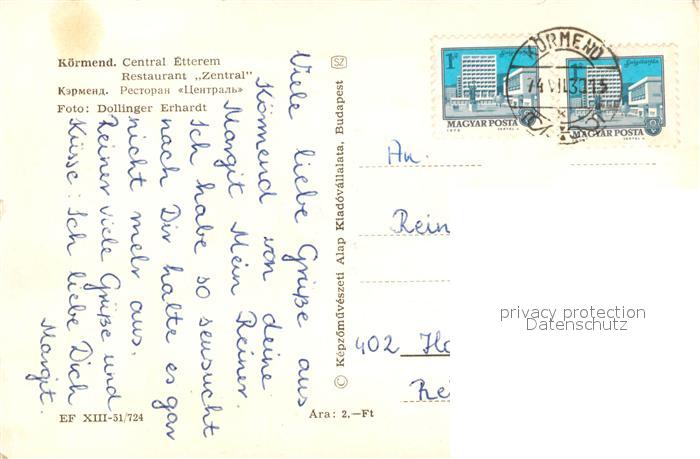 Körmend. Central Étterem
Restaurant „Zentral"
Кэрменд. Ресторан «Централь»
Foto: Dollinger Erhardt
Viele liebe Grüße aus
Körmend von deine
Margit. Mein Reiner.
Ich habe so sensucht
nach Dir halte es gar
nicht mehr aus.
Reiner viele Grüße und
Küsse: Ich liebe Dich
Margit.
EF XIII-51/724
Ara: 2,—Ft
© Képzőművészeti Alap Kiadóvállalata, Budapest
SZ
1Ft
Salgótarján
MAGYAR POSTA
1Ft
MAGYAR POSTA
KÖRMEND
74 VII.30.13
An.
Rein
402
privacy protection
Datenschutz